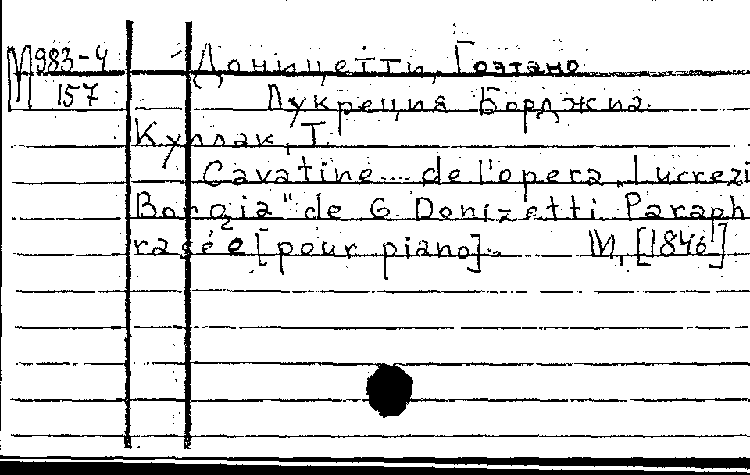 М 983-4 Доницетти, Гаэтано
157 Лукреция Борджиа.
Куллак, Т.
Cavatine... de l'opera „Lucrezi
Borgia" de G Donizetti Paraph
rasée [pour piano]. M, [1846]